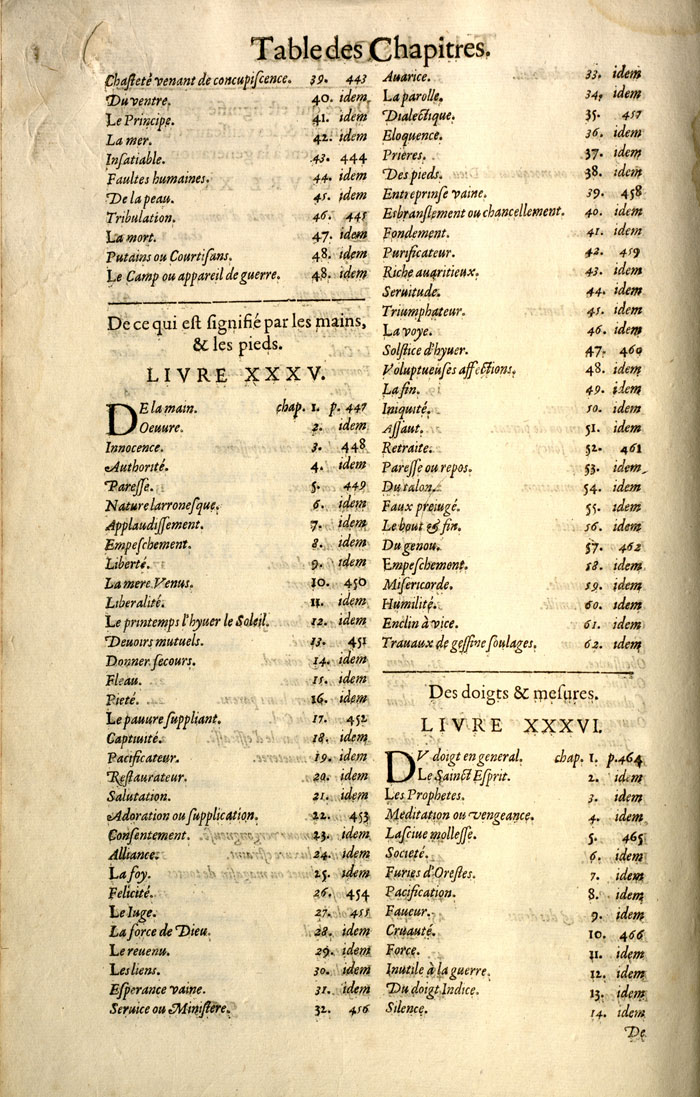 Table des Chapitres.
Chasteté venant de concupiscence. 39. 443
Du ventre. 40. idem
Le Principe. 41. idem
La mer. 42. idem
Insatiable. 43. 444
Faultes humaines. 44. idem
De la peau. 45. idem
Tribulation. 46. 445
La mort. 47. idem
Putains ou Courtisans. 48. idem
Le Camp ou appareil de guerre. 48. idem
De ce qui est signifié par les mains,
& les pieds.
LIVRE XXXV.
DE la main. chap. 1. p. 447
Oeuure. 2. idem
Innocence. 3. 448
Authorité. 4. idem
Paresse. 5. 449
Nature larronesque. 6. idem
Applaudissement. 7. idem
Empeschement. 8. idem
Liberté. 9. idem
La mere Venus. 10. 450
Liberalité. 11. idem
Le printemps l'hyuer le Soleil. 12. idem
Deuoirs mutuels. 13. 451
Donner secours. 14. idem
Fleau. 15. idem
Pieté. 16. idem
Le pauure suppliant. 17. 452
Captiuité. 18. idem
Pacificateur. 19. idem
Restaurateur. 20. idem
Salutation. 21. idem
Adoration ou supplication. 22. 453
Consentement. 23. idem
Alliance. 24. idem
La foy. 25. idem
Felicité. 26. 454
Le Iuge. 27. 455
La force de Dieu. 28. idem
Le reuenu. 29. idem
Les liens. 30. idem
Esperance vaine. 31. idem
Seruice ou Ministere. 32. 456
Auarice. 33. idem
La parolle. 34. idem
Dialectique. 35. 457
Eloquence. 36. idem
Prieres. 37. idem
Des pieds. 38. idem
Entreprinse vaine. 39. 458
Esbranslement ou chancellement. 40. idem
Fondement. 41. idem
Purificateur. 42. 459
Riche auaritieux. 43. idem
Seruitude. 44. idem
Triumphateur. 45. idem
La voye. 46. idem
Solstice d'hyuer. 47. 460
Voluptueuses affections. 48. idem
La fin. 49. idem
Iniquité. 50. idem
Assaut. 51. idem
Retraite. 52. 461
Paresse ou repos. 53. idem
Du talon. 54. idem
Faux preiugé. 55. idem
Le bout & fin. 56. idem
Du genou. 57. 462
Empeschement. 58. idem
Misericorde. 59. idem
Humilité. 60. idem
Enclin à vice. 61. idem
Trauaux de gessine soulages. 62. idem
Des doigts & mesures.
LIVRE XXXVI.
DV doigt en general. chap. 1. p. 464
Le Sainct Esprit. 2. idem
Les Prophetes. 3. idem
Meditation ou vengeance. 4. idem
Lasciue mollesse. 5. 465
Societé. 6. idem
Furies d'Orestes. 7. idem
Pacification. 8. idem
Faueur. 9. idem
Cruauté. 10. 466
Force. 11. idem
Inutile à la guerre. 12. idem
Du doigt Indice. 13. idem
Silence. 14. idem
De